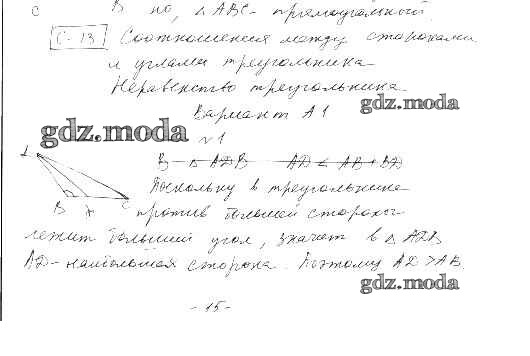 В но, △ ABC - прямоугольный.
С-13 Соотношения между сторонами
и углами треугольника
Неравенство треугольника
gdz.moda
Вариант А1
gdz.moda
№1
В △ ADB AD < AB + BD
Поскольку в треугольнике
B C
против большей стороны
лежит больший угол, значит в △ ADB
AD - наибольшая сторона. Поэтому AD > AB.
gdz.moda
- 15 -